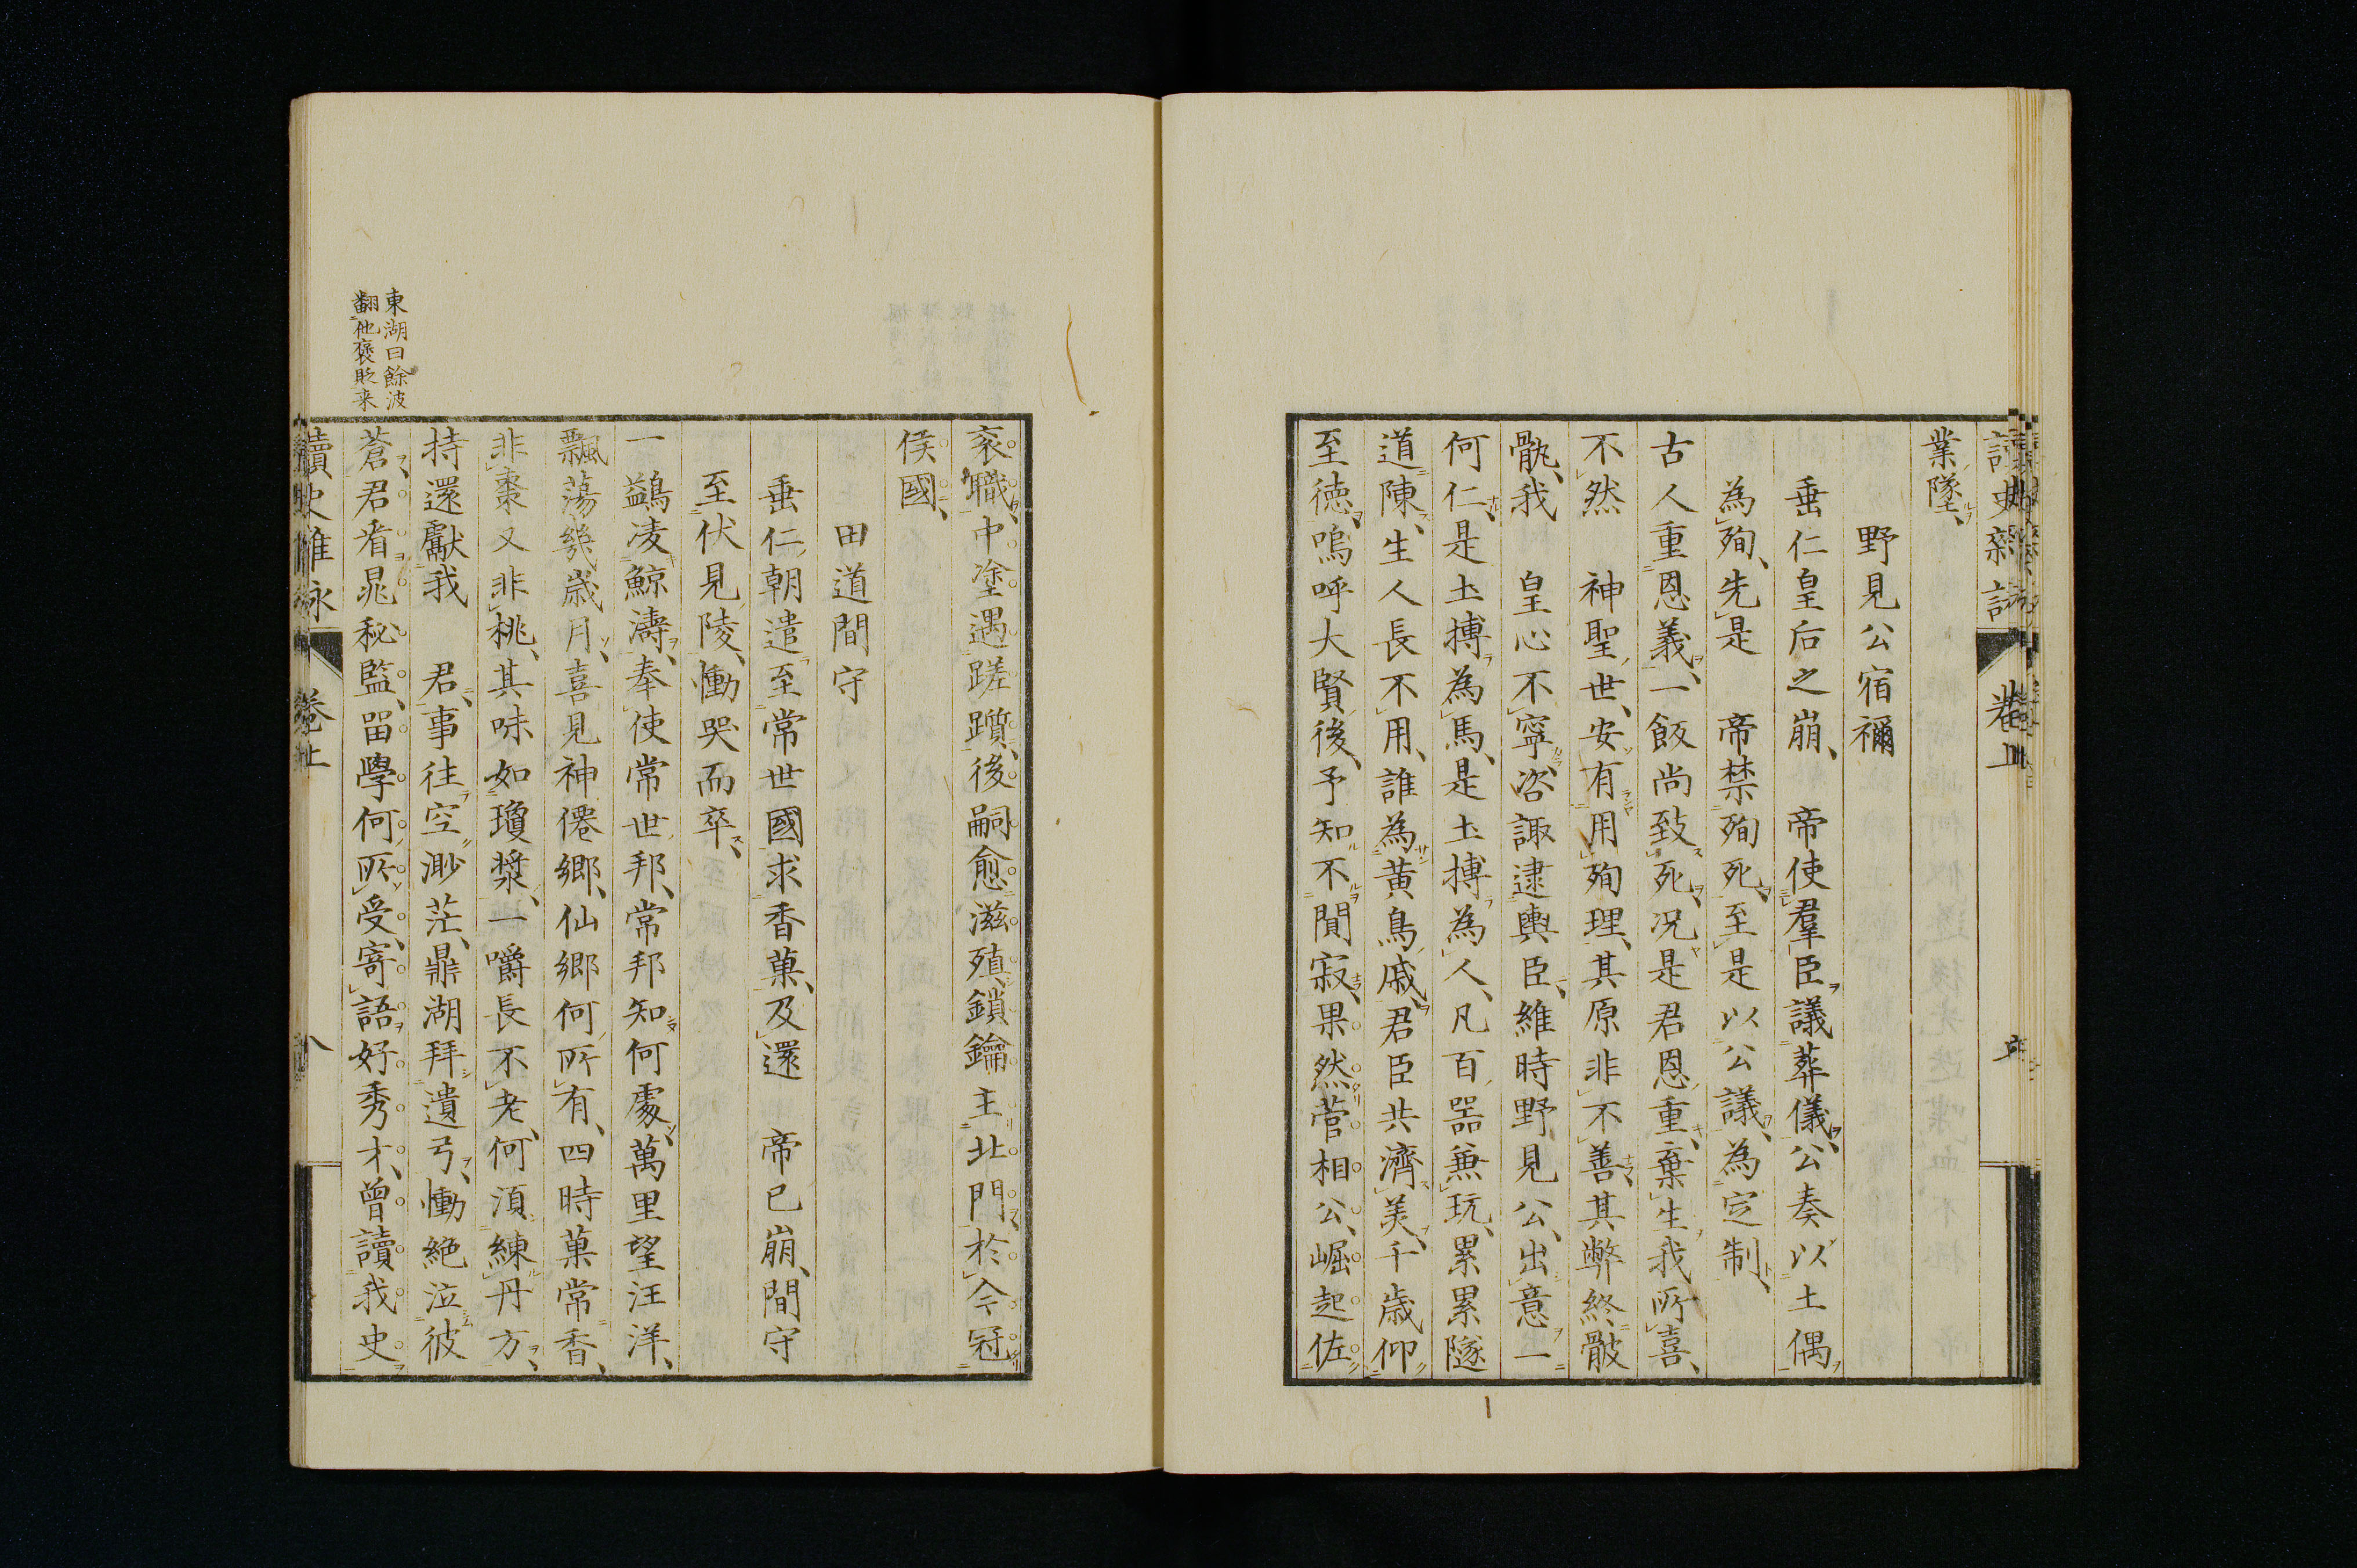 業墜、
野見公宿禰
垂仁皇后之崩、　帝使群臣議葬儀、公奏以土偶
為殉、先是　帝禁殉死、至是以公議、為定制、
古人重恩義、一飯尚致死、况是君恩重、棄生我所喜、
不然　神聖世、安有用殉理、其原非不善、其弊終骰
骩、我　皇心不寧、咨諏逮輿臣、維時野見公、出意一
何仁、是土摶為馬、是土摶為人、凡百器兼玩、累累隧
道陳、生人長不用、誰為黄鳥戚、君臣共濟美、千歳仰
至徳、嗚呼大賢後、予知不聞寂、果然菅相公、崛起佐
衮職、中塗遇蹉躓、後嗣愈滋殖、鎖鑰主北門、於今冠
侯國、
田道間守
垂仁朝遣至常世國求香菓、及還　帝已崩、間守
至伏見陵、慟哭而卒、
一鷁凌鯨濤、奉使常世邦、常邦知何處、萬里望汪洋、
飄蕩幾歳月、喜見神僊郷、仙郷何所有、四時菓常香、
非棗又非桃、其味如瓊漿、一嚼長不老、何須練丹方、
持還獻我　君、事往空渺茫、鼎湖拜遺弓、慟絶泣彼
蒼、君看晁秘監、留學何所受、寄語好秀才、曾讀我史
讀史雜咏　卷上　八
東湖曰餘波
翻他褒貶来